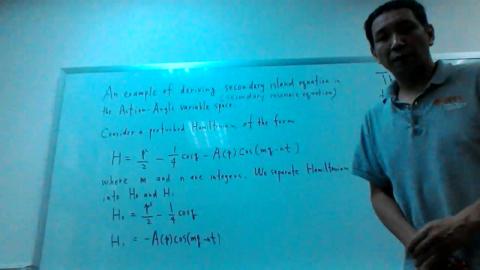 An example of deriving secondary island equation in
the Action-Angle variable space. (secondary resonance equation)
Consider a perturbed Hamiltonian of the form
H = p²/2 - 1/4 cosq - A(p) Cos(mq-nt)
where m and n are integers. We separate Hamiltonian
into H₀ and H₁
H₀ = p²/2 - 1/4 cosq
H₁ = -A(p) cos(mq-nt)